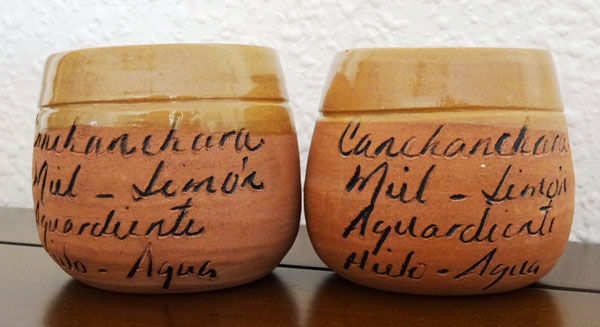 Canchanchara
Miel - Limón
Aguardiente
Hielo - Agua
Canchanchara
Miel - Limón
Aguardiente
Hielo - Agua